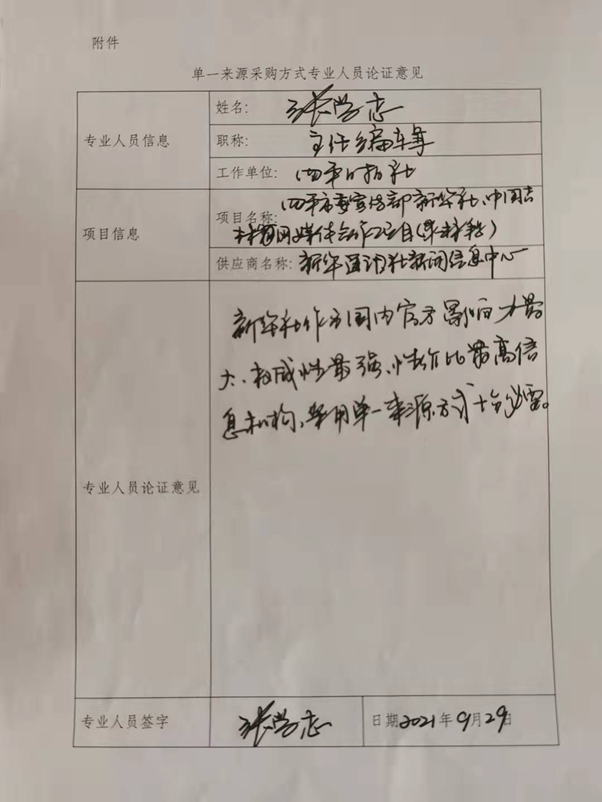 附件
单一来源采购方式专业人员论证意见
专业人员信息
姓名：张学志
职称：主任编辑
工作单位：四平日报社
项目信息
项目名称：四平市委宣传部新华社、中国吉
林网媒体合作项目（单来源）
供应商名称：新华通讯社新闻信息中心
专业人员论证意见
新华社作为国内官方影响力最
大、权威性最强、性价比最高信
息机构，采用单一来源方式十分必要。
专业人员签字
张学志
日期2021年9月29日